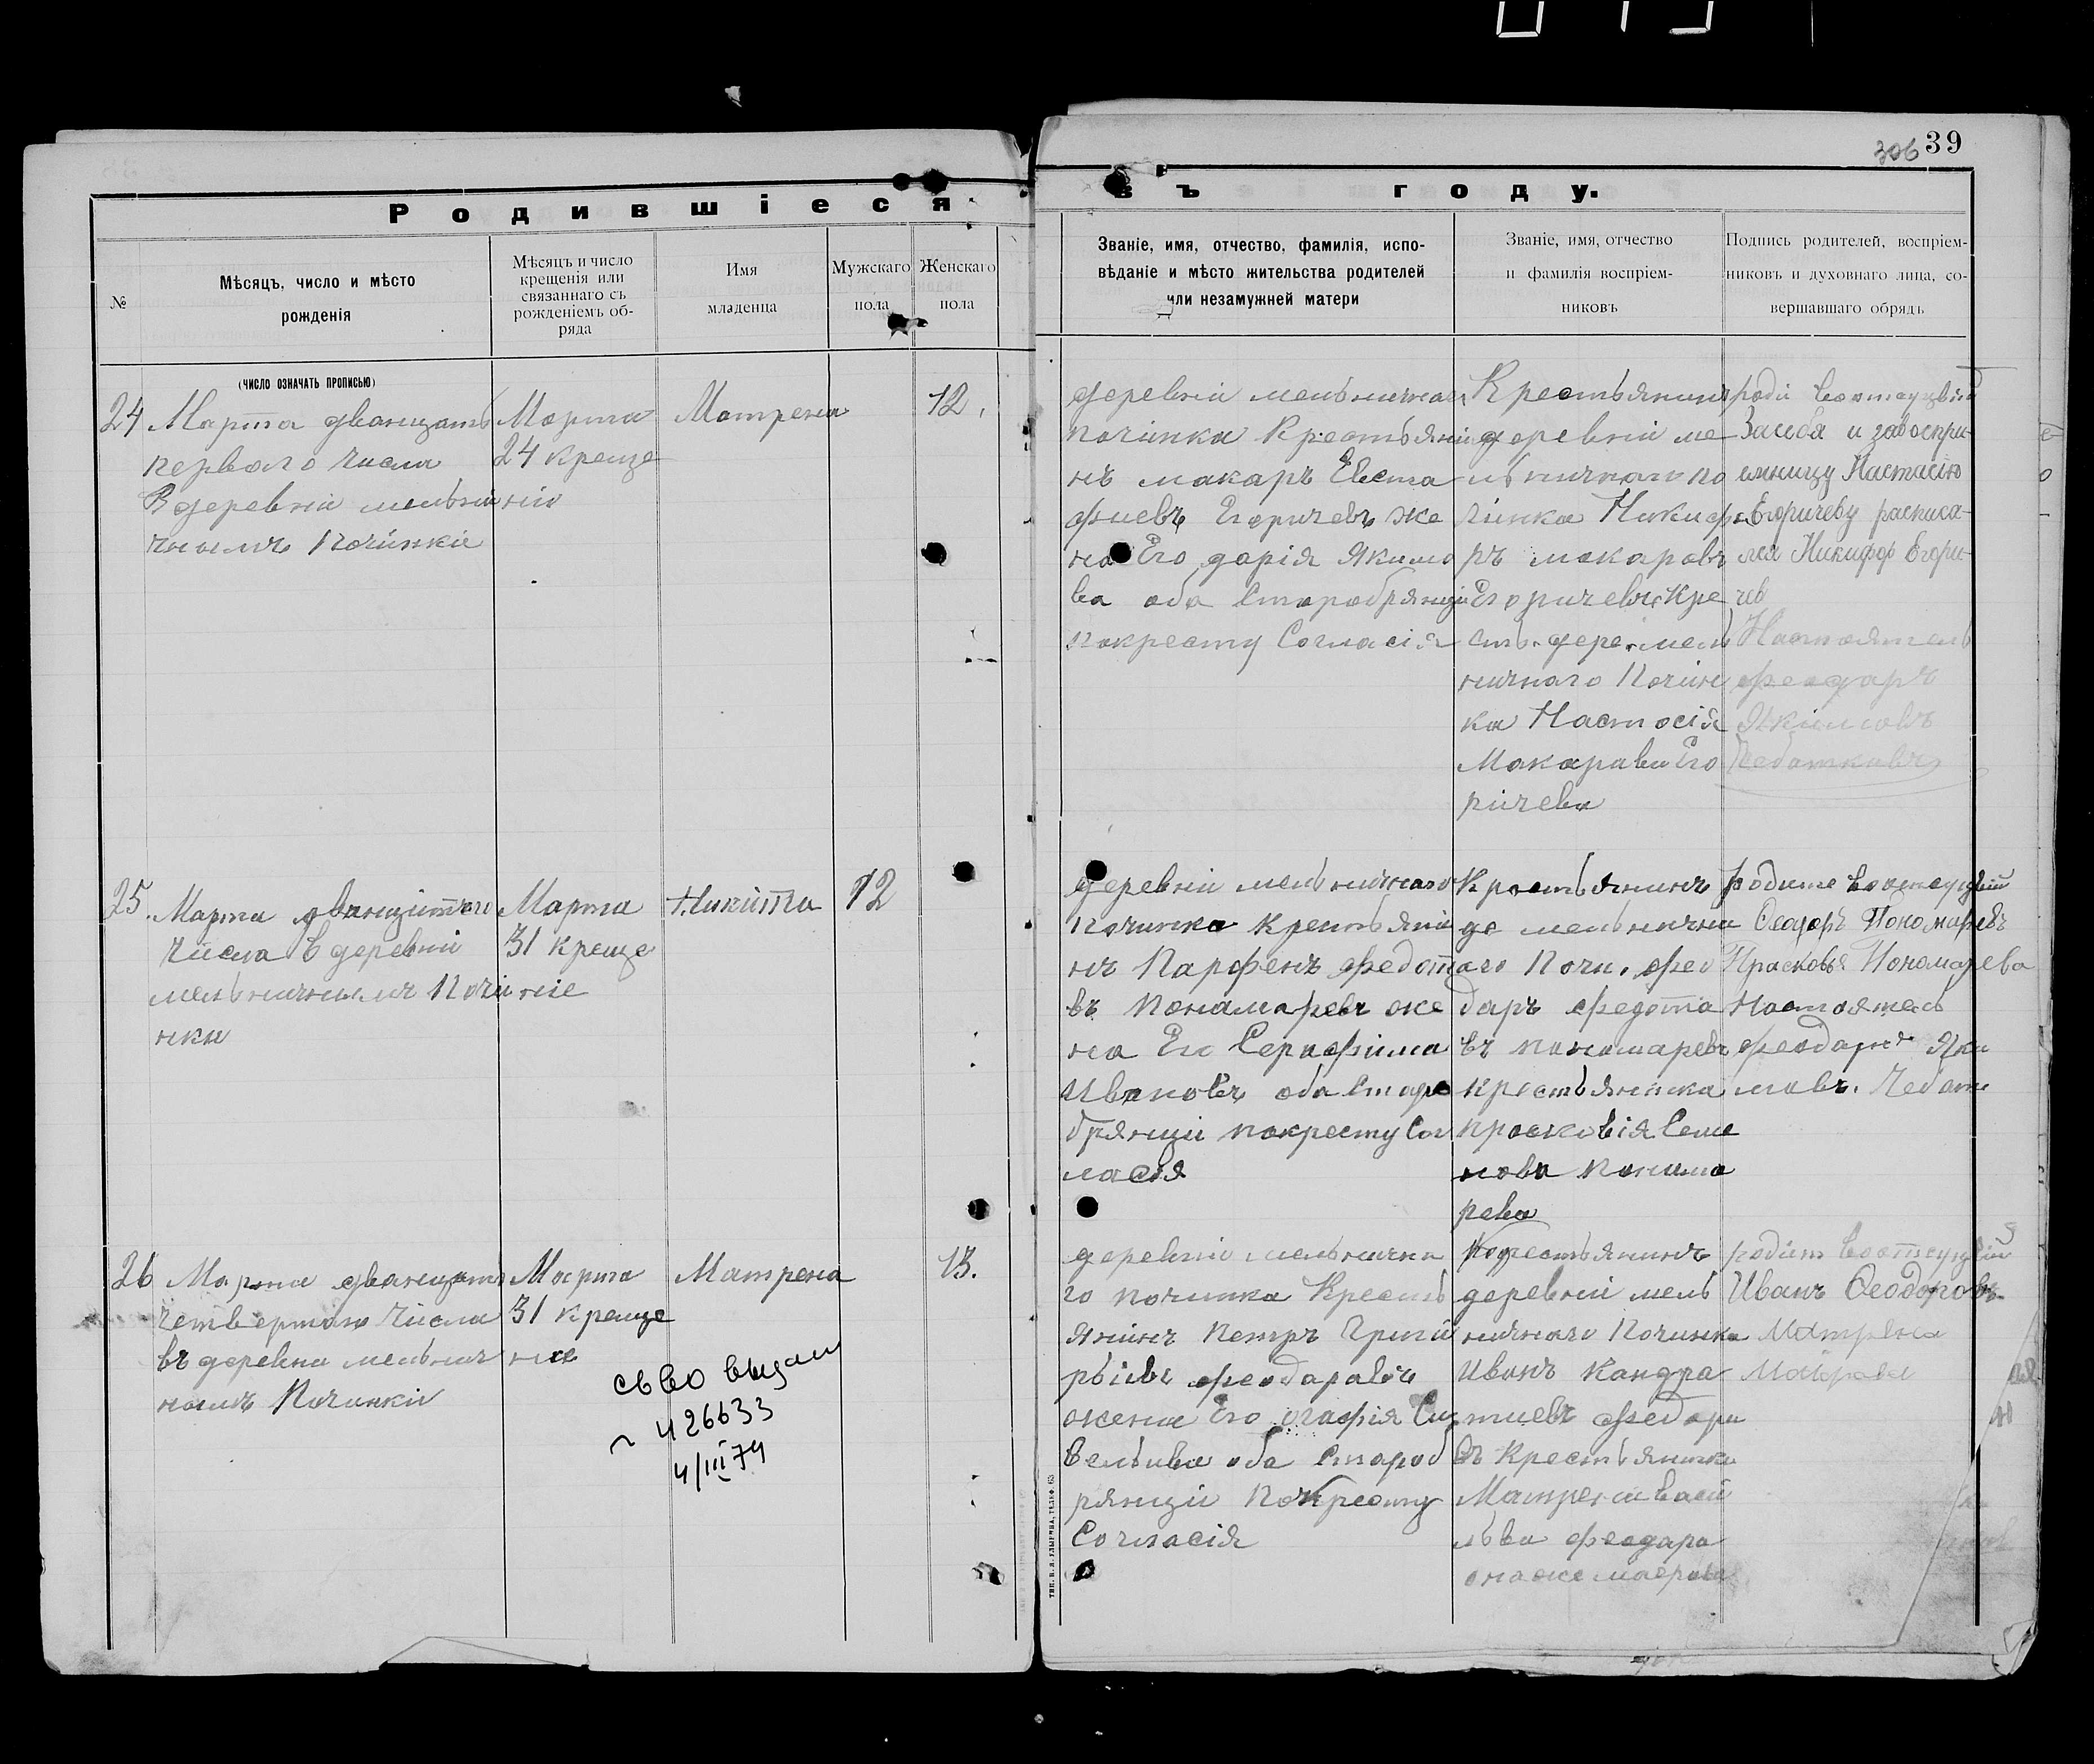 306 39
Родившіеся
въ году.
№
Мѣсяцъ, число и мѣсто
рожденія
(число означать прописью)
Мѣсяцъ и число
крещенія или
связаннаго съ
рожденіемъ об-
ряда
Имя
младенца
Мужскаго
пола
Женскаго
пола
Званіе, имя, отчество, фамилія, испо-
вѣданіе и мѣсто жительства родителей
или незамужней матери
Званіе, имя, отчество
и фамилія воспріем-
никовъ
Подпись родителей, воспріем-
никовъ и духовнаго лица, со-
вершавшаго обрядъ
24
Марта дванцать
первого числа
В деревніи мельни
чнымъ Почінкіе
Марта
24 креще
ніи
Матрена
12.
деревніи мельничнаго
почінка Крестьяни
нъ макаръ Евста
фиевъ Егоричевъ же
на Его дарія Якимо
ва оба Старобрянцы
покресту Согласія
Крестьянинъ
деревніи ме
льничнаго по
чінка Никифо
ръ макаровъ
Егоричевъ Кре
сть. дере. мель
ничнаго Почін
ка Настосія
Макарава Его
ричева
роди воотсуцвий
За себя и за воспри-
емницу Настасію
Егоричеву расписа-
лся Никифор Егори-
чев
Настоятель
феодаръ
Якімовъ
Чебатковъ
25.
Марта дванцитого
числа в деревніи
мельничнымъ Почі
нки
Марта
31 креще
ніе
Никита
12
деревніи мельничнаго
Починка крестьяни
нъ Парфенъ федота
въ Понамаревъ же
на Его Серафима
Ивановъ оба Старо
брянцы покресту Сог
ласія
Крестьянинъ
де мельнична
аго Почи. фео
даръ федота
въ пономаревъ
крестьянинка
просковія Семе
нова понама
рева
родите воотсуцвии
Ѳеодоръ Пономаревъ
Прасковья Пономарева
Настоятель
феодаръ Яки
мовъ. Чебат
26
Марта дванцать
четвертого числа
въ деревни мельнич
номъ Почінкіи
Марта
31 креще
ніе
Матрена
13.
св-во выдан
426633
4/III 74
деревніи мельнична
го починка Кресть
янинъ Петръ Григо
рьивъ феодаравъ
жена Его огафія
Савельива оба Старооб
рянцы Покресту
Согласія
Крестьянинъ
деревніи мель
ничнаго Починка
Иванъ Кандра
тиевъ федора
въ Крестьянинка
Матрена Васи
льва феодара
она же маерова
родит воотсуцвіи
Иванъ Ѳеодоровъ
Матрена
Маерова